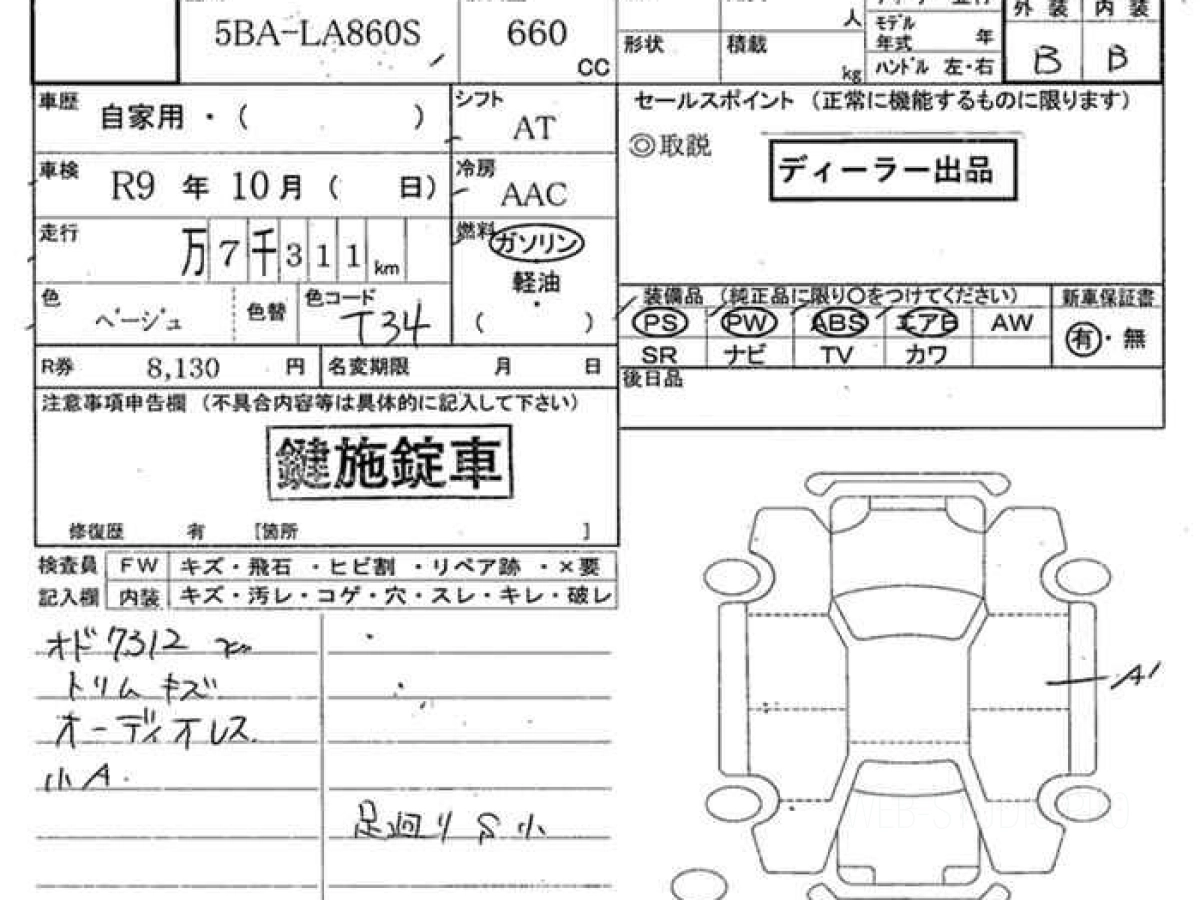 5BA-LA860S
660
CC
人
形状
積載
kg
モデル
年式 年
ハンドル 左・右
外装 内装
B B
車歴 自家用・( )
シフト
AT
車検 R9年10月( 日)
冷房
AAC
走行 万7千311km
燃料
ガソリン
軽油
( )
色 ベージュ
色替
色コード T34
R券 8,130円
名変期限 月 日
セールスポイント (正常に機能するものに限ります)
◎取説
ディーラー出品
装備品 (純正品に限り○をつけてください)
PS PW ABS エアB AW
SR ナビ TV カワ
新車保証書
有・無
後日品
注意事項申告欄 (不具合内容等は具体的に記入して下さい)
鍵施錠車
修復歴 有 [箇所 ]
検査員 FW キズ・飛石・ヒビ割・リペア跡・×要
記入欄 内装 キズ・汚レ・コゲ・穴・スレ・キレ・破レ
オド7312
トリムキズ
オーディオレス
小A.
足廻りS小
A1